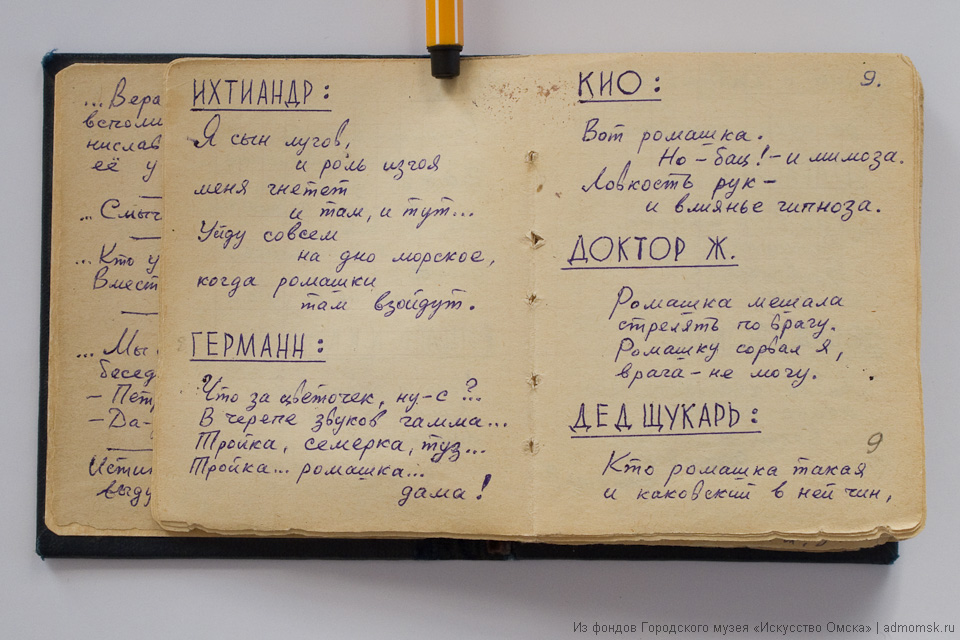 ... Вера
вспоми
нислав
её у
... Смыч
... Кто у
Вмест
... Мы
бесед
- Пет
- Да-
Истин
выду
ИХТИАНДР:
Я сын лугов,
и роль изгоя
меня гнетет
и там, и тут...
Уйду совсем
на дно морское,
когда ромашки
там взойдут.
ГЕРМАНН:
Что за цветочек, ну-с?...
В черепе звуков гамма...
Тройка, семерка, туз...
Тройка... ромашка...
дама!
КИО:
9.
Вот ромашка.
Но - бац! - и мимоза.
Ловкость рук -
и влиянье гипноза.
ДОКТОР Ж.
Ромашка мешала
стрелять по врагу.
Ромашку сорвал я,
врага - не могу.
ДЕД ЩУКАРЬ:
9
Кто ромашка такая
и каковский в ней чин,
Из фондов Городского музея «Искусство Омска» | admomsk.ru